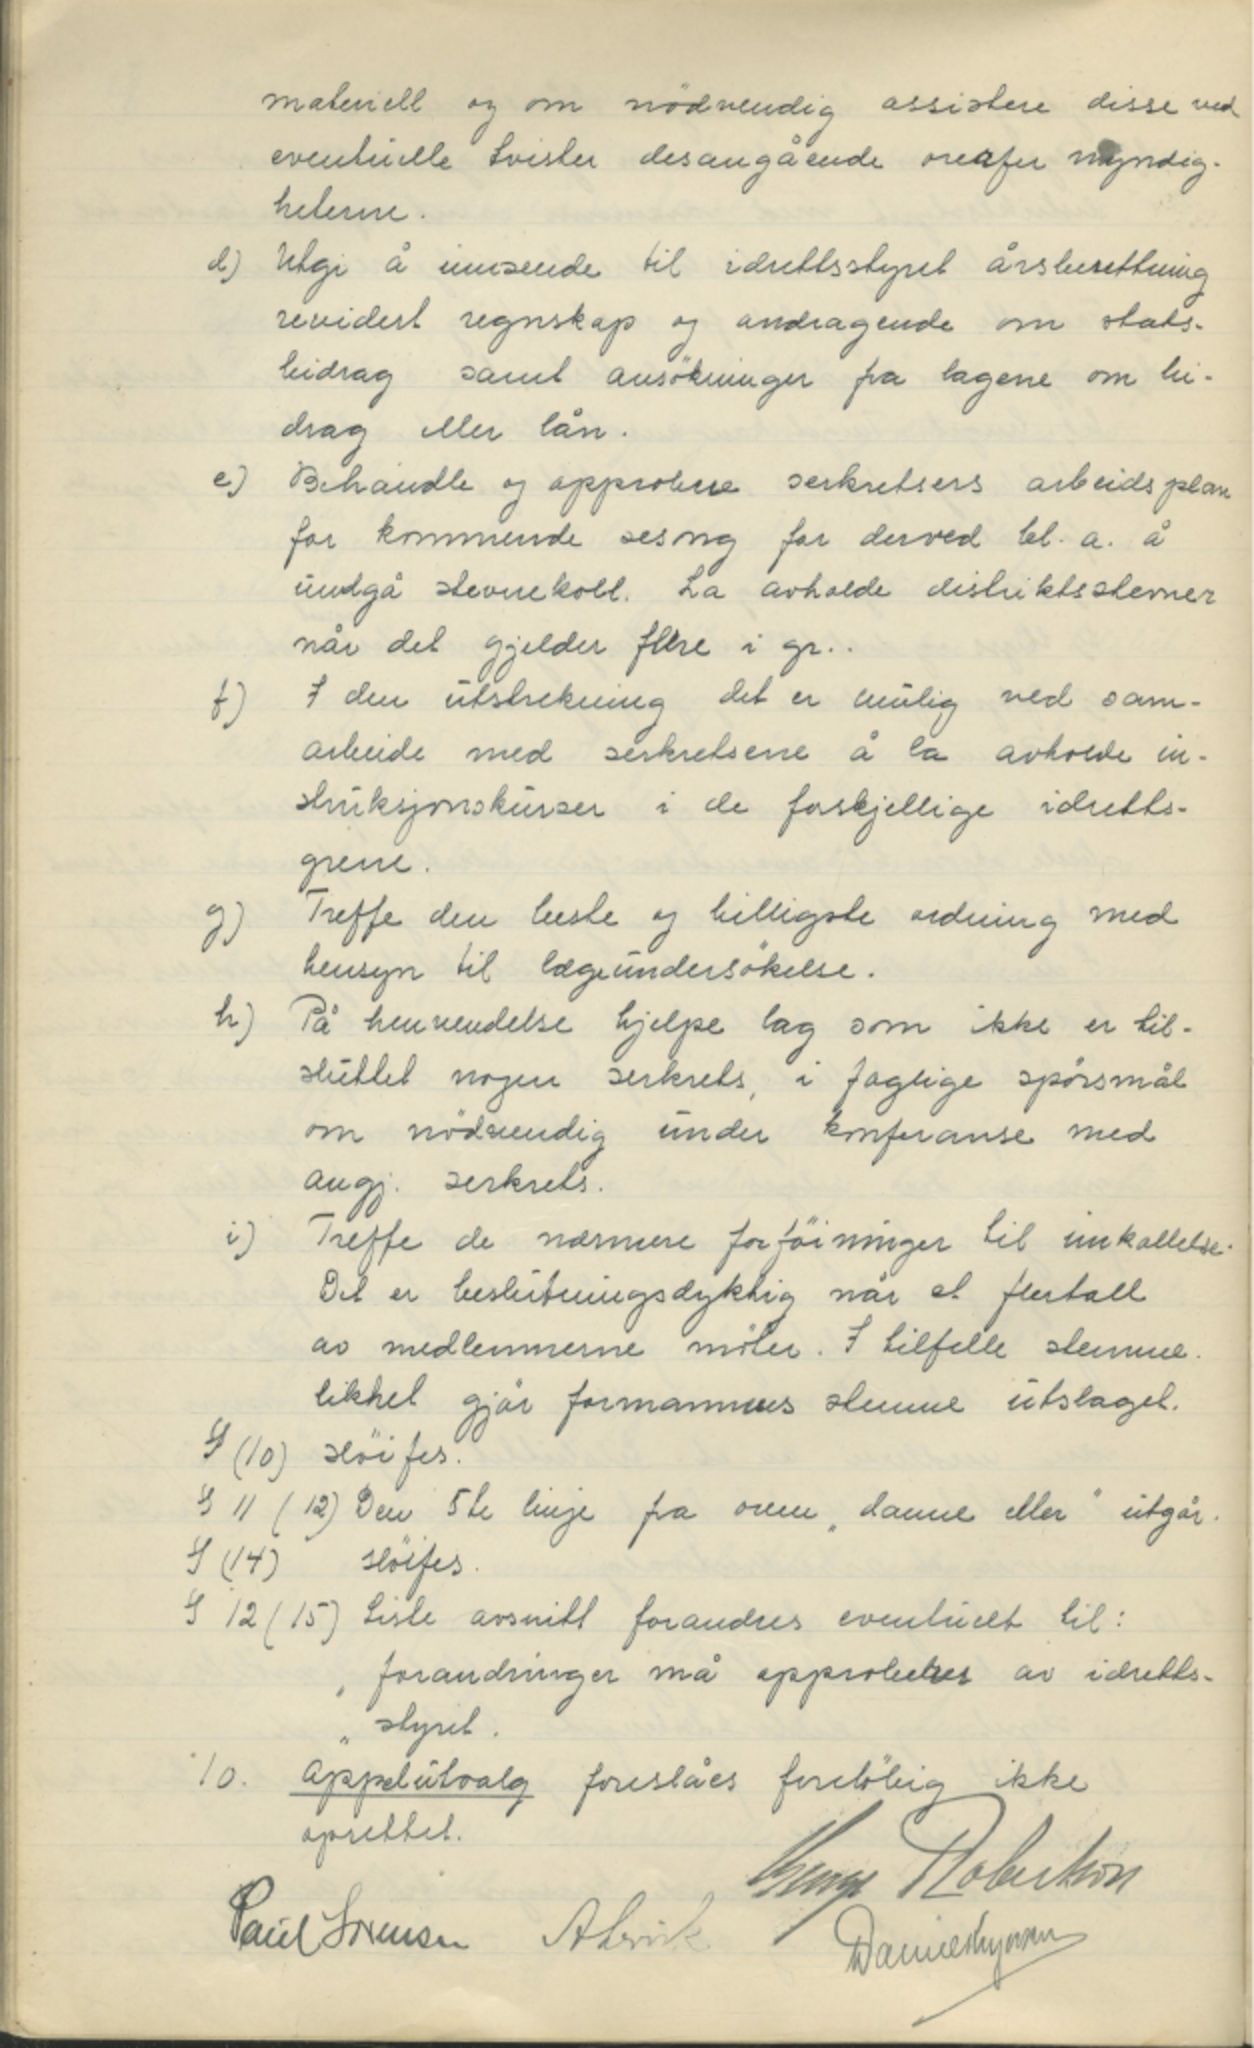 materiell og om nödvendig assistere disse ved
eventuelle tvister desangående overfor myndig-
heterne.
d) Utgi å innsende til idrettsstyret årsberettning
revidert regnskap og andragende om stats-
bidrag samt ansökninger fra lagene om bi-
drag eller lån.
e) Behandle og approbere serkretsers arbeidsplan
for kommende sesong for derved bl. a. å
undgå stevnekoll. La avholde distriktsstevner
når det gjelder flere i gr..
f) I den utstrekning det er mulig ved sam-
arbeide med serkretsene å la avholde in-
struksjonskurser i de forskjellige idretts-
grene.
g) Treffe den beste og billigste ordning med
hensyn til lægeundersökelse.
h) På henvendelse hjelpe lag som ikke er til-
sluttet nogen serkrets, i faglige spörsmål
om nödvendig under konferanse med
angj. serkrets.
i) Treffe de nærmere forföininger til innkallelse.
Det er beslutningsdyktig når et flertall
av medlemmerne möter. I tilfelle stemme-
likhet gjör formannens stemme utslaget.
§ (10) slöifes.
§ 11 (12) Den 5te linje fra oven „danne eller" utgår.
§ (14) slöifes.
§ 12 (15) Siste avsnitt forandres eventuelt til:
„ forandringer må approberes av idretts-
„ styret.
10. Appelutvalg foreslåes foreløbig ikke
oprettet.
George Robertson
Paul Sörensen